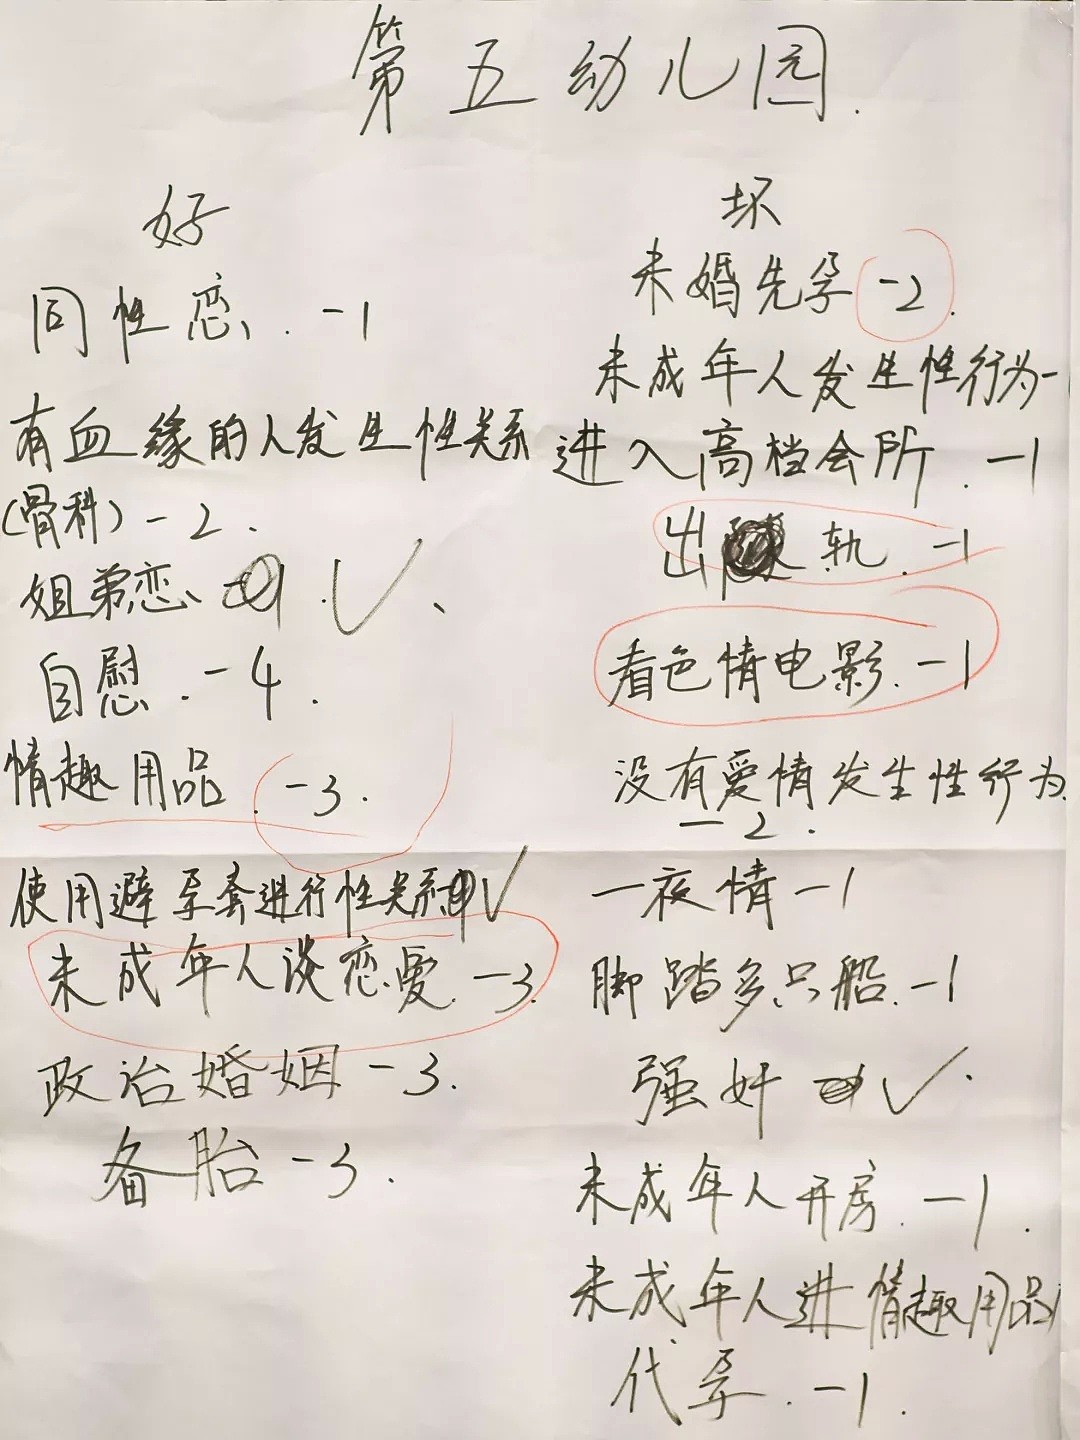 第五幼儿园.
好
同性恋. -1
有血缘的人发生性关系
(骨科) -2.
姐弟恋、 1. ✓、
自慰. -4.
情趣用品. -3.
使用避孕套进行性关系 ✓
未成年人谈恋爱. -3.
政治婚姻 -3.
备胎 -3.
坏
未婚先孕 -2.
未成年人发生性行为-
进入高档会所. -1
出轨. -1
看色情电影. -1
没有爱情发生性行为.
-2.
一夜情 -1
脚踏多只船. -1
强奸 ✓.
未成年人开房. -1.
未成年人进情趣用品
代孕. -1.